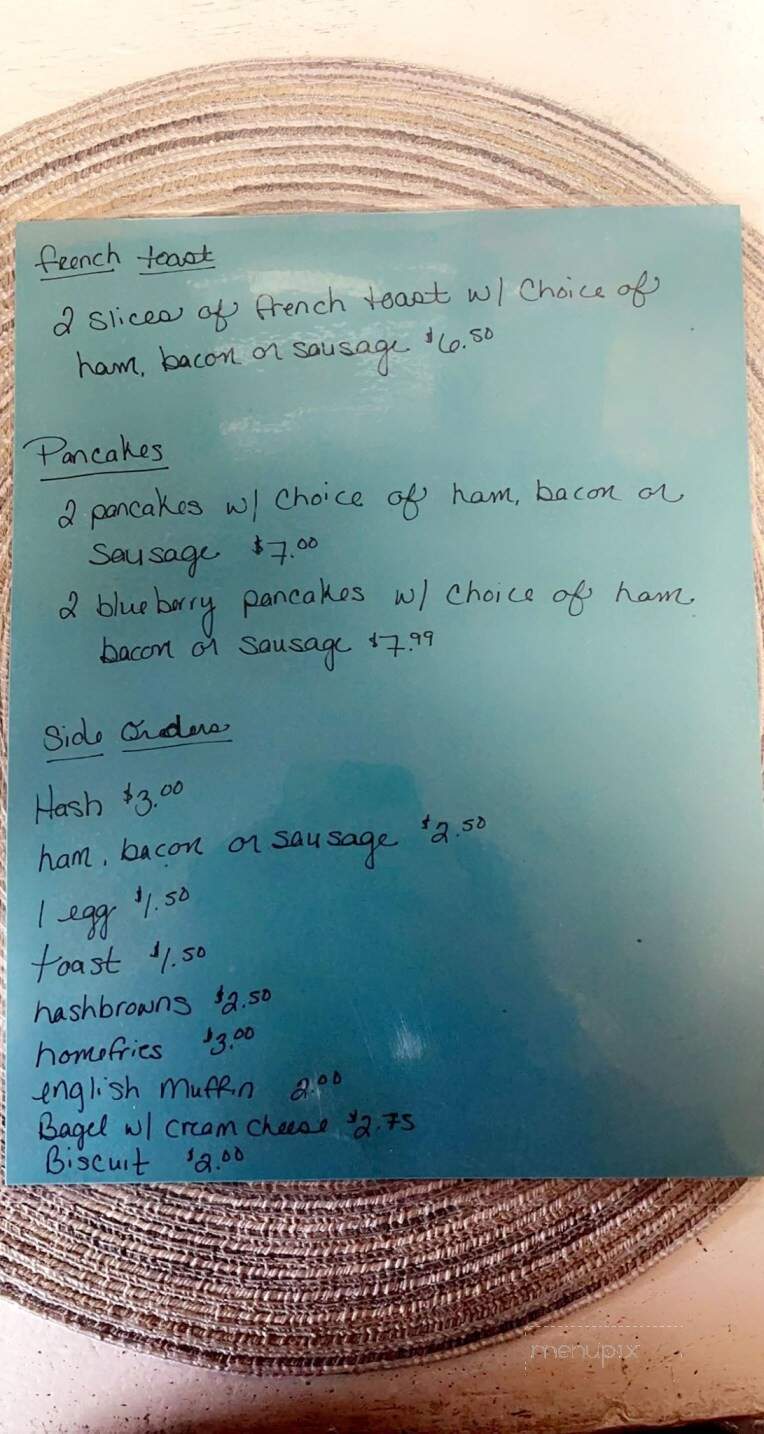 french toast
2 slices of french toast w/ Choice of
ham, bacon or sausage $6.50
Pancakes
2 pancakes w/ choice of ham, bacon or
Sausage $7.00
2 blueberry pancakes w/ choice of ham,
bacon or sausage $7.99
Side Orders
Hash $3.00
ham, bacon or sausage $2.50
1 egg $1.50
toast $1.50
hashbrowns $2.50
homefries $3.00
english muffin 2.00
Bagel w/ cream cheese $2.75
Biscuit $2.00
menupix